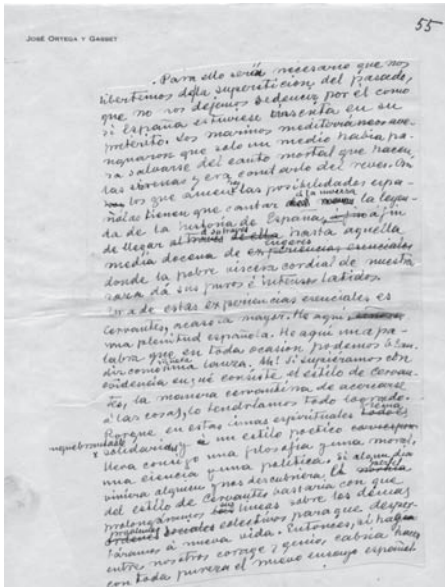 55
JOSÉ ORTEGA Y GASSET
Para ello sería necesario que nos
libertemos de la superstición del pasado,
que no nos dejemos seducir por él como
si España estuviese inscrita en su
pretérito. Los marinos mediterráneos ave-
riguaron que solo un medio había pa-
ra salvarse del canto mortal que hacen
las sirenas y era cantarlo del revés. Así
los que amen hoy las posibilidades espa-
ñolas tienen que cantar a la inversa la leyen-
da de la historia de España, a fin
de llegar a su través hasta aquella
media docena de lugares
donde la pobre víscera cordial de nuestra
raza dá sus puros é intensos latidos.
Una de estas experiencias esenciales es
Cervantes, acaso la mayor. He aquí
una plenitud española. He aquí una pa-
labra que en toda ocasión podemos blan-
dir como si fuera una lanza. Ah! Si supiéramos con
evidencia en qué consiste el estilo de Cervan-
tes, la manera cervantina de acercarse
á las cosas, lo tendríamos todo logrado.
Porque en estas cimas espirituales reina
inquebrantable
solidaridad y á un estilo poético
lleva consigo una filosofía y una moral,
una ciencia y una política. Si algún día
viniera alguien y nos descubriera el perfil
del estilo de Cervantes bastaría con que
prolongáramos sus líneas sobre los demás
problemas colectivos para que desper-
táramos á nueva vida. Entonces, si hay
entre nosotros coraje y genio, cabría hacer
con toda pureza el nuevo ensayo español